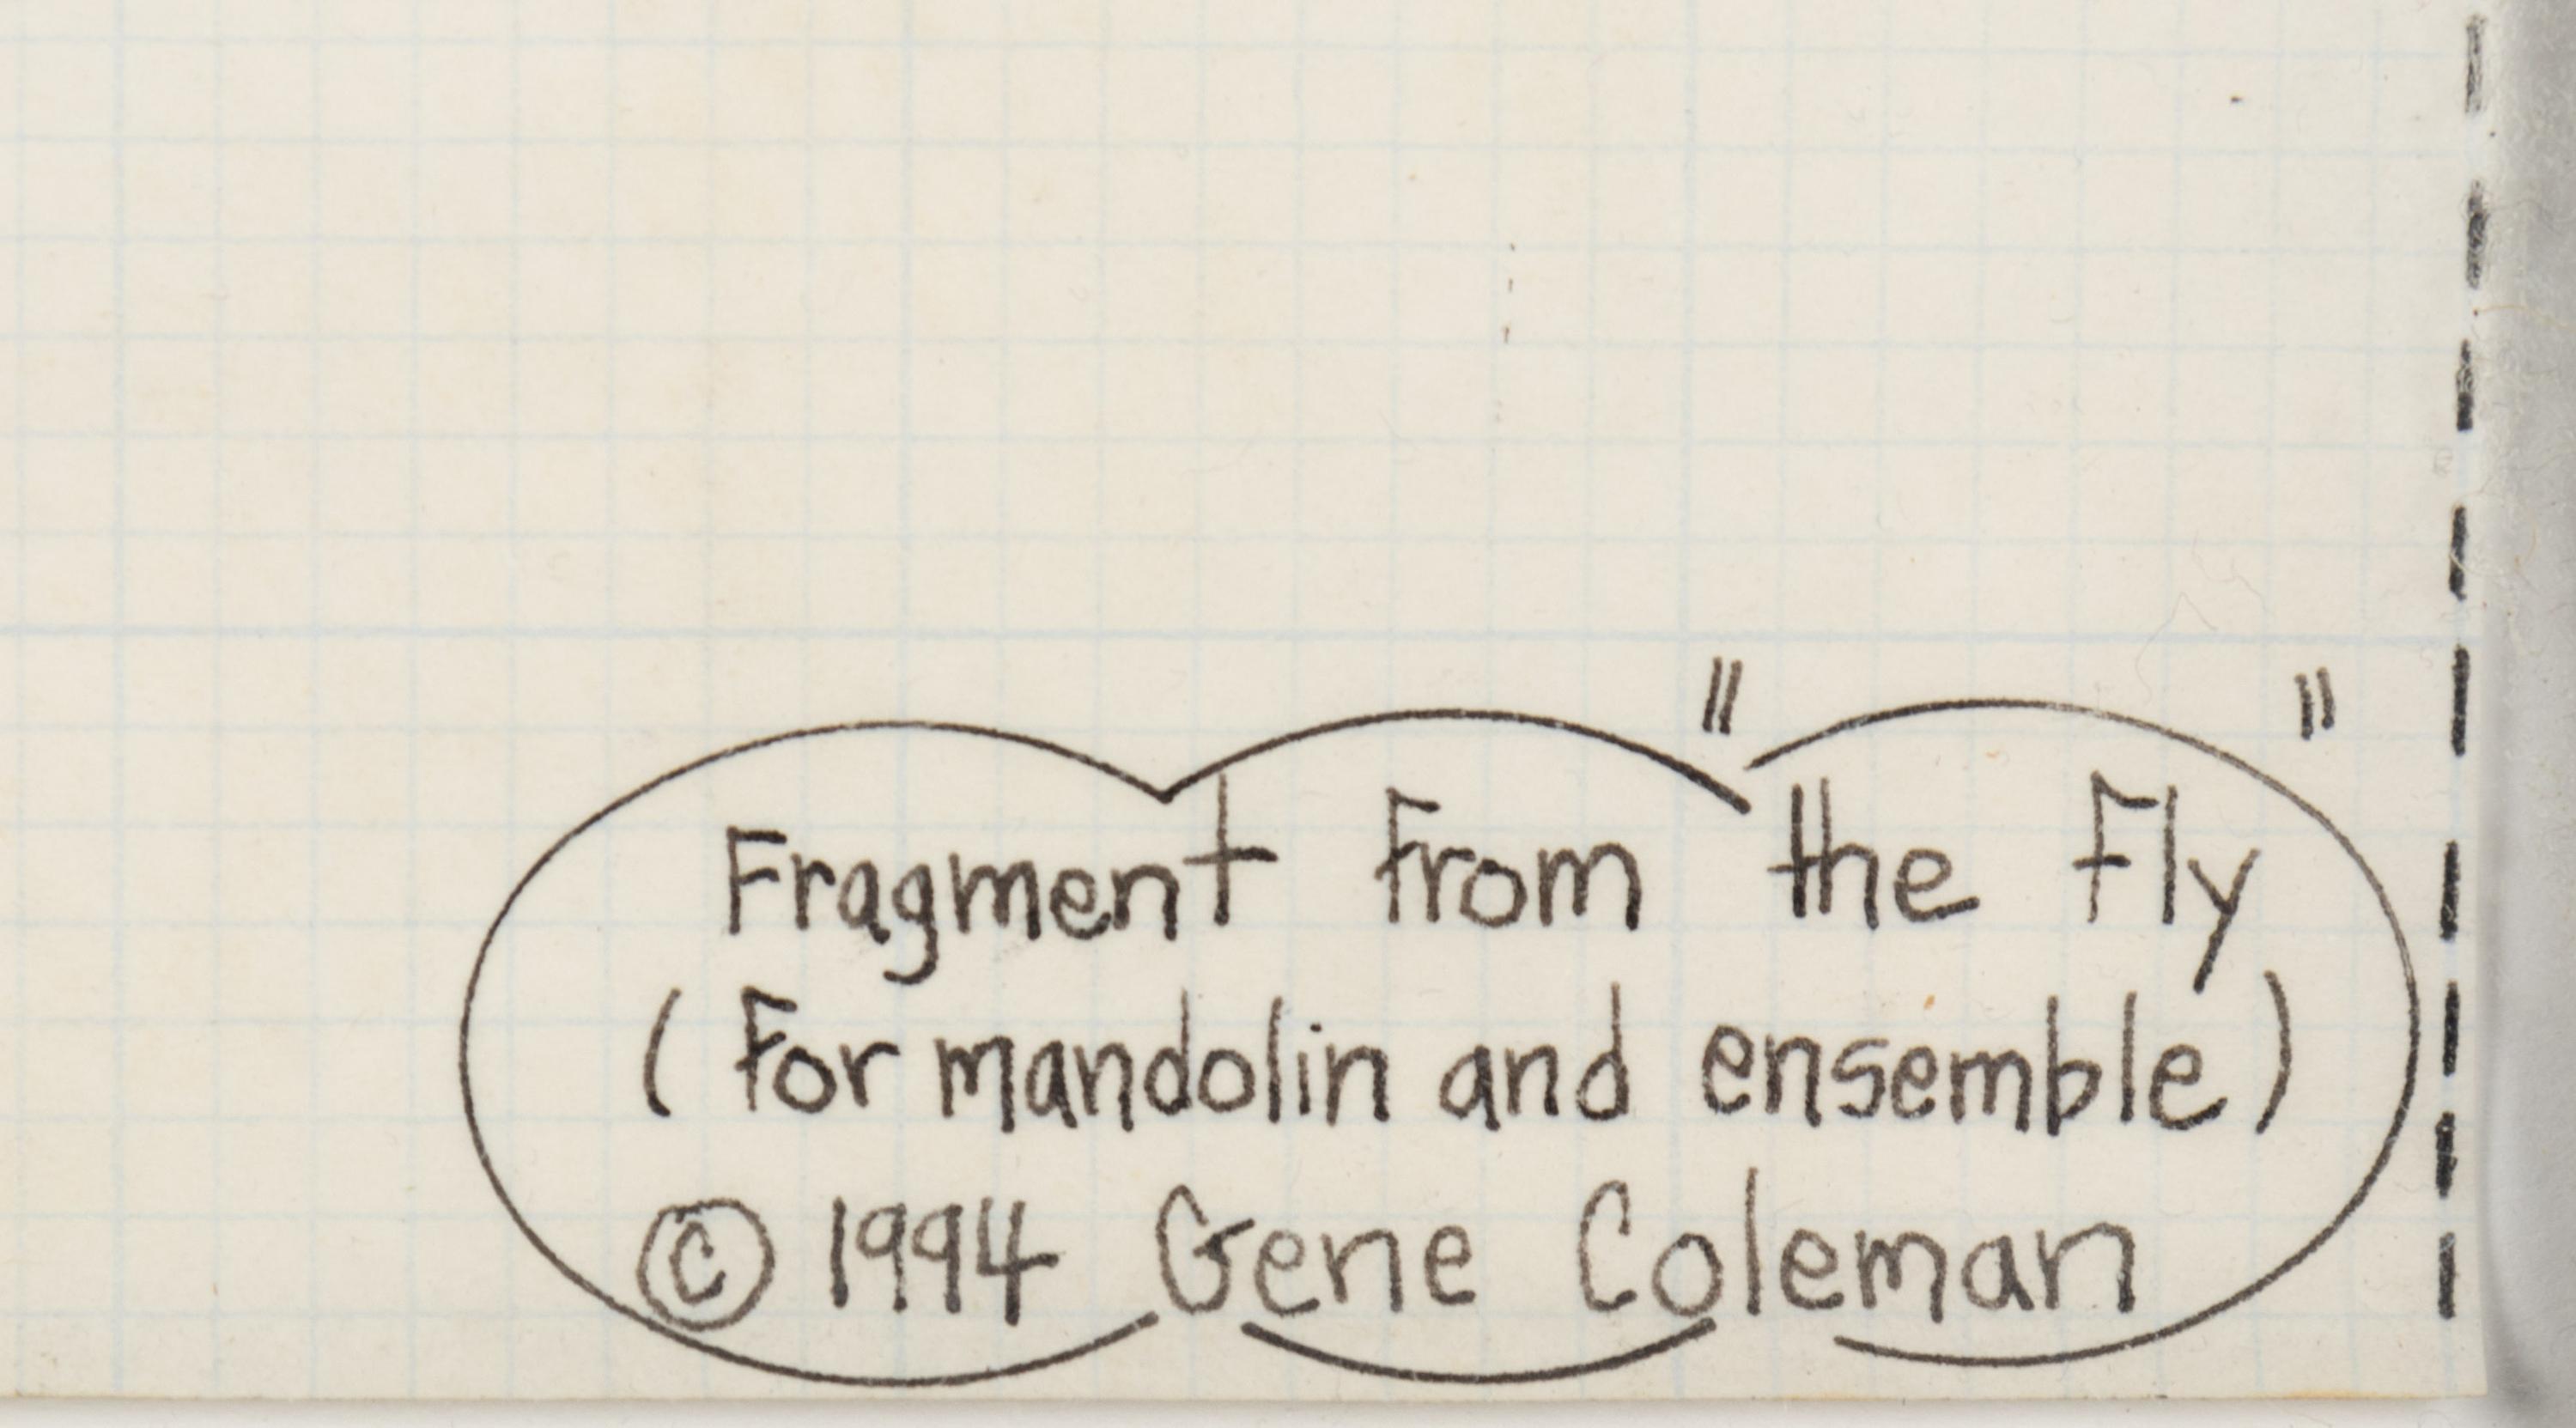 Fragment from "the fly"
(for mandolin and ensemble)
© 1994 Gene Coleman